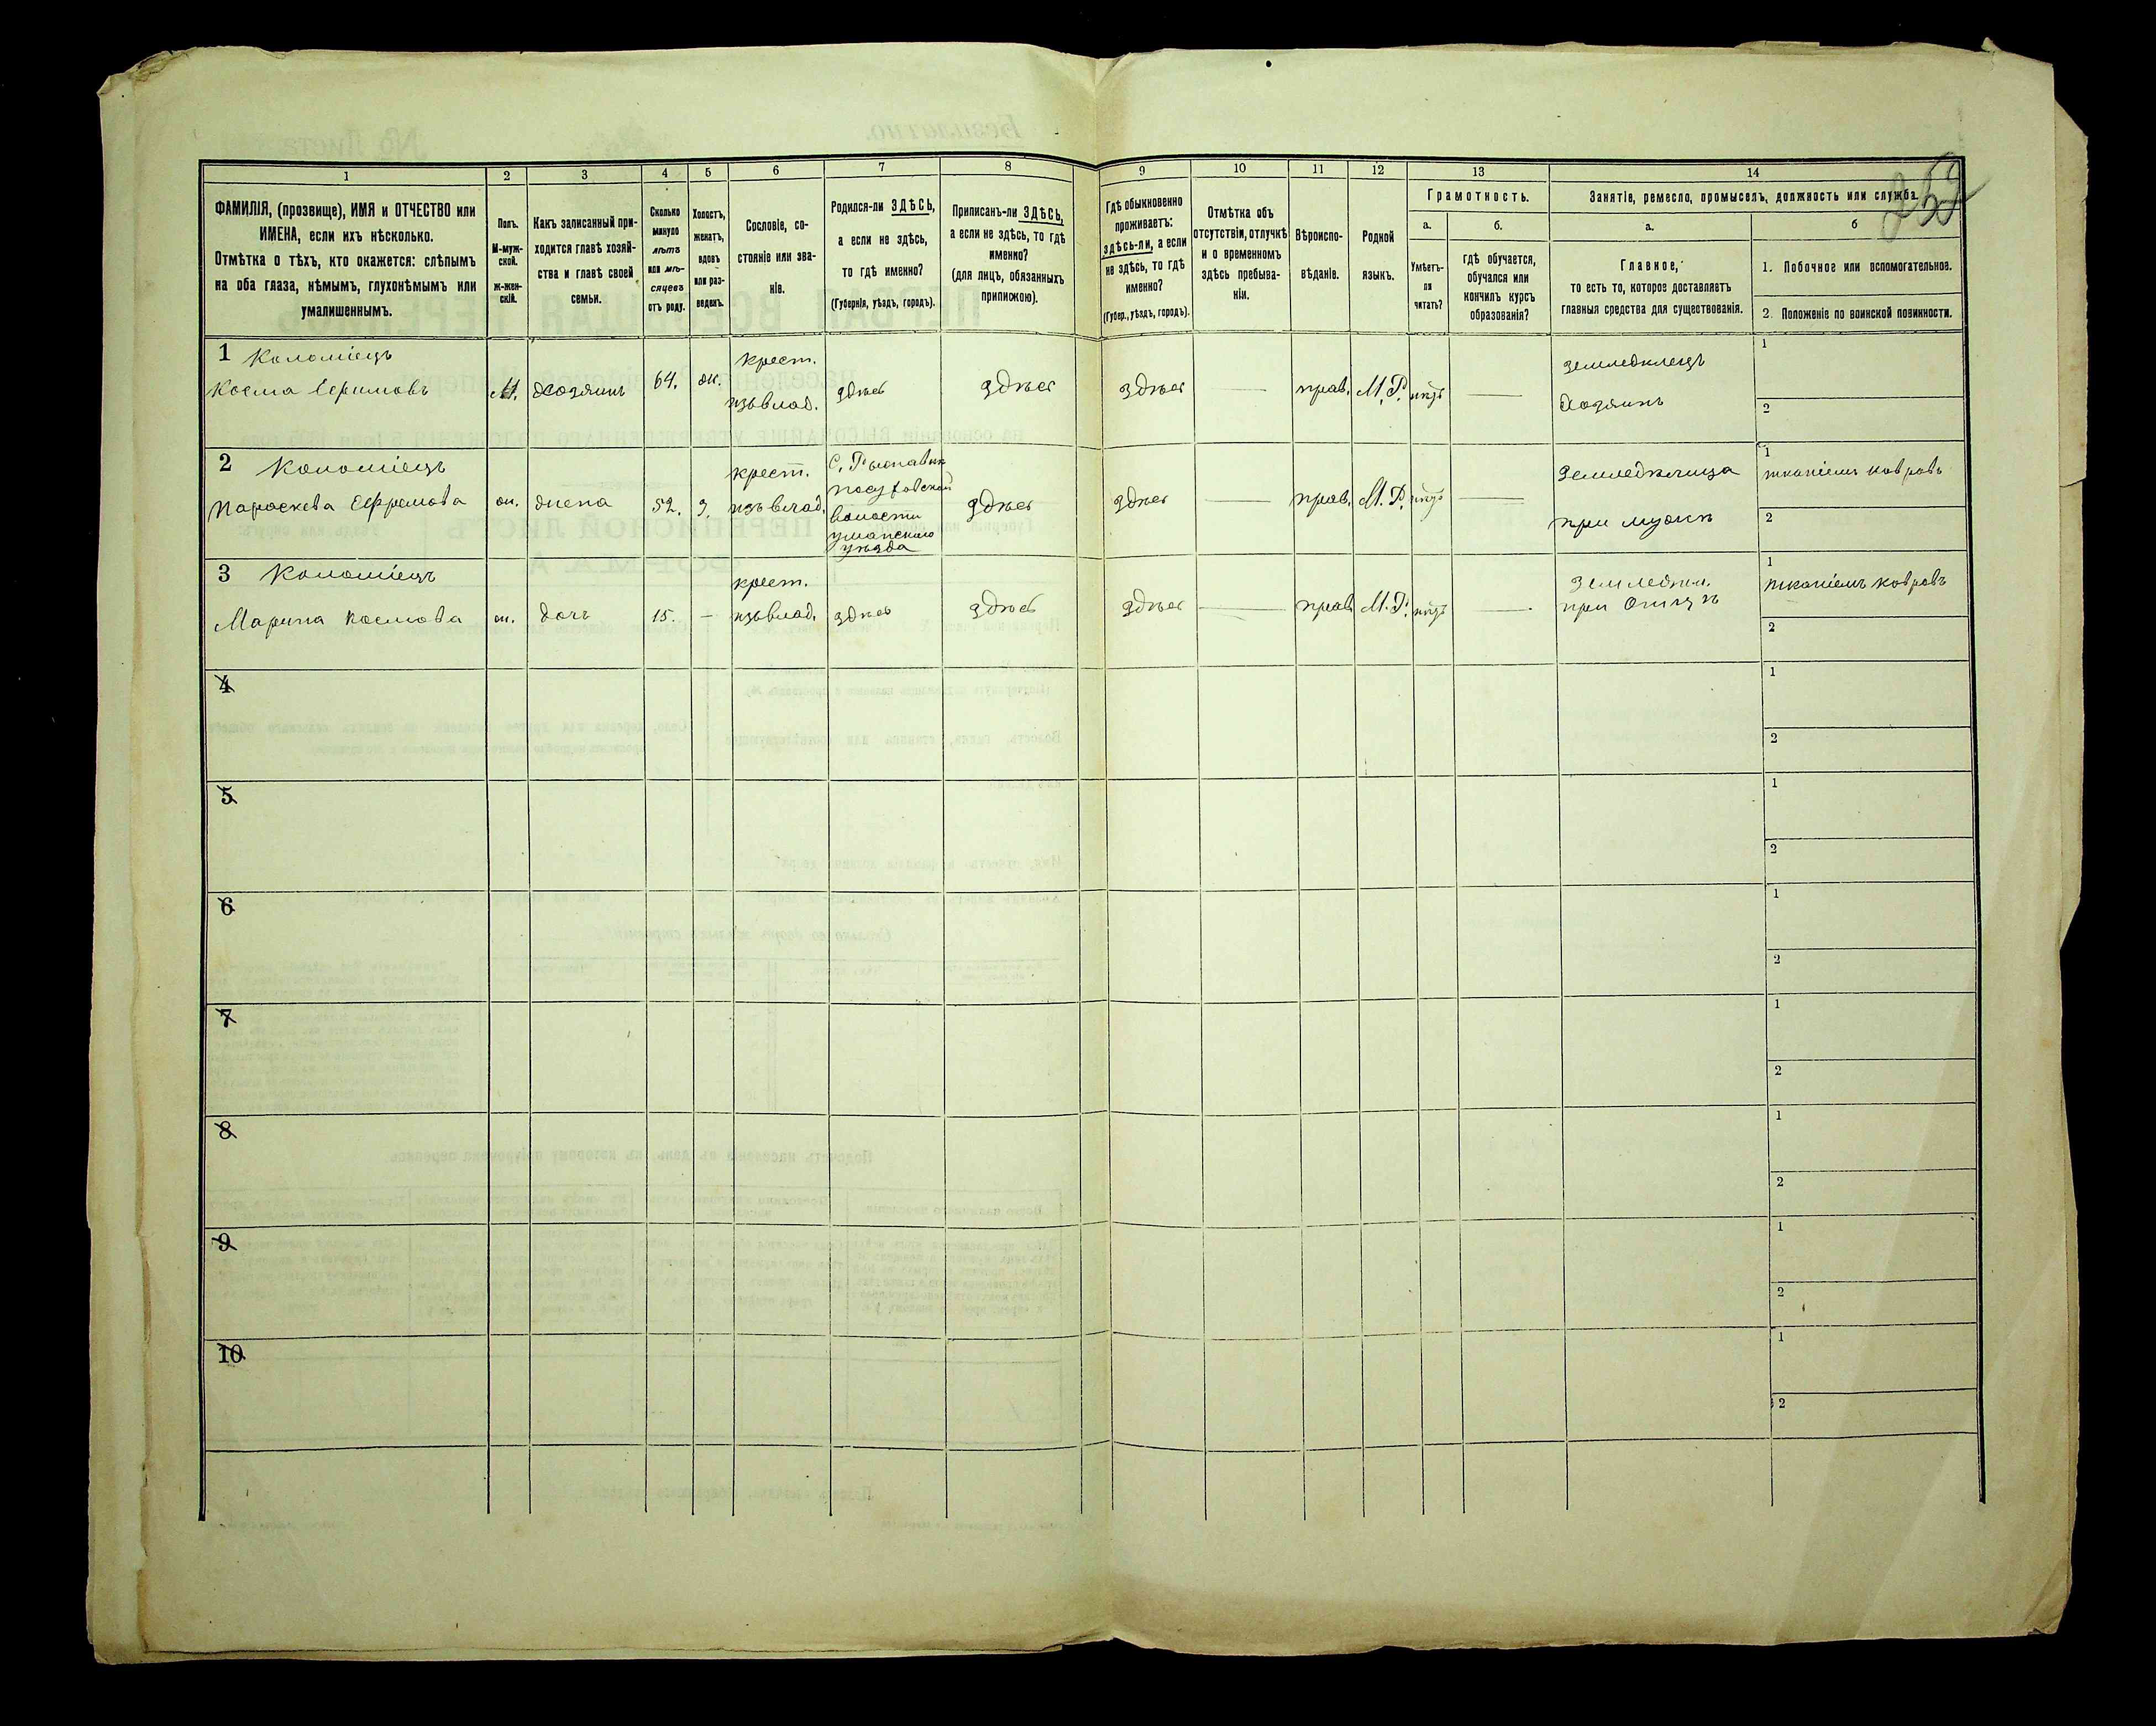 253
1 2 3 4 5 6 7 8 9 10 11 12 13 14
ФАМИЛІЯ, (прозвище), ИМЯ и ОТЧЕСТВО или
ИМЕНА, если ихъ нѣсколько.
Отмѣтка о тѣхъ, кто окажется: слѣпымъ
на оба глаза, нѣмымъ, глухонѣмымъ или
умалишеннымъ.
Полъ.
М-муж-
ской.
ж-жен-
скій.
Какъ записанный при-
ходится главѣ хозяй-
ства и главѣ своей
семьи.
Сколько
минуло
лѣтъ
или мѣ-
сяцевъ
отъ роду.
Холостъ,
женатъ,
вдовъ
или раз-
веденъ.
Сословіе, со-
стояніе или зва-
ніе.
Родился-ли ЗДѢСЬ,
а если не здѣсь,
то гдѣ именно?
(Губернія, уѣздъ, городъ).
Приписанъ-ли ЗДѢСЬ,
а если не здѣсь, то гдѣ
именно?
(для лицъ, обязанныхъ
припискою).
Гдѣ обыкновенно
проживаетъ:
здѣсь-ли, а если
не здѣсь, то гдѣ
именно?
(Губер., уѣздъ, городъ).
Отмѣтка объ
отсутствіи, отлучкѣ
и о временномъ
здѣсь пребыва-
ніи.
Вѣроиспо-
вѣданіе.
Родной
языкъ.
Грамотность.
а.
Умѣетъ-
ли
читать?
б.
гдѣ обучается,
обучался или
кончилъ курсъ
образованія?
Занятіе, ремесло, промыселъ, должность или служба.
а.
Главное,
то есть то, которое доставляетъ
главныя средства для существованія.
б
1. Побочное или вспомогательное.
2. Положеніе по воинской повинности.
1 Коломіецъ
Косма М. Хозяинъ 64. ж. крест.
изъ влад. здѣсь здѣсь здѣсь — прав. М.Р. нѣтъ — Земледѣлецъ
Хозяинъ
1
2
2 Коломіецъ
Параскева Ефремова ж. жена 52. з. крест.
изъ влад.
волости
уманского
уѣзда
здѣсь здѣсь — прав. М.Р. нѣтъ — Земледѣлица
при мужѣ
1 тканіемъ ковровъ
2
3 Коломіецъ
Марина Космова ж. дочь 15. — крест.
изъ влад. здѣсь здѣсь здѣсь — прав. М.Р. нѣтъ — Земледѣл.
при Отцѣ
1 тканіемъ ковровъ
2
4 1
2
5 1
2
6 1
2
7 1
2
8 1
2
9 1
2
10 1
2